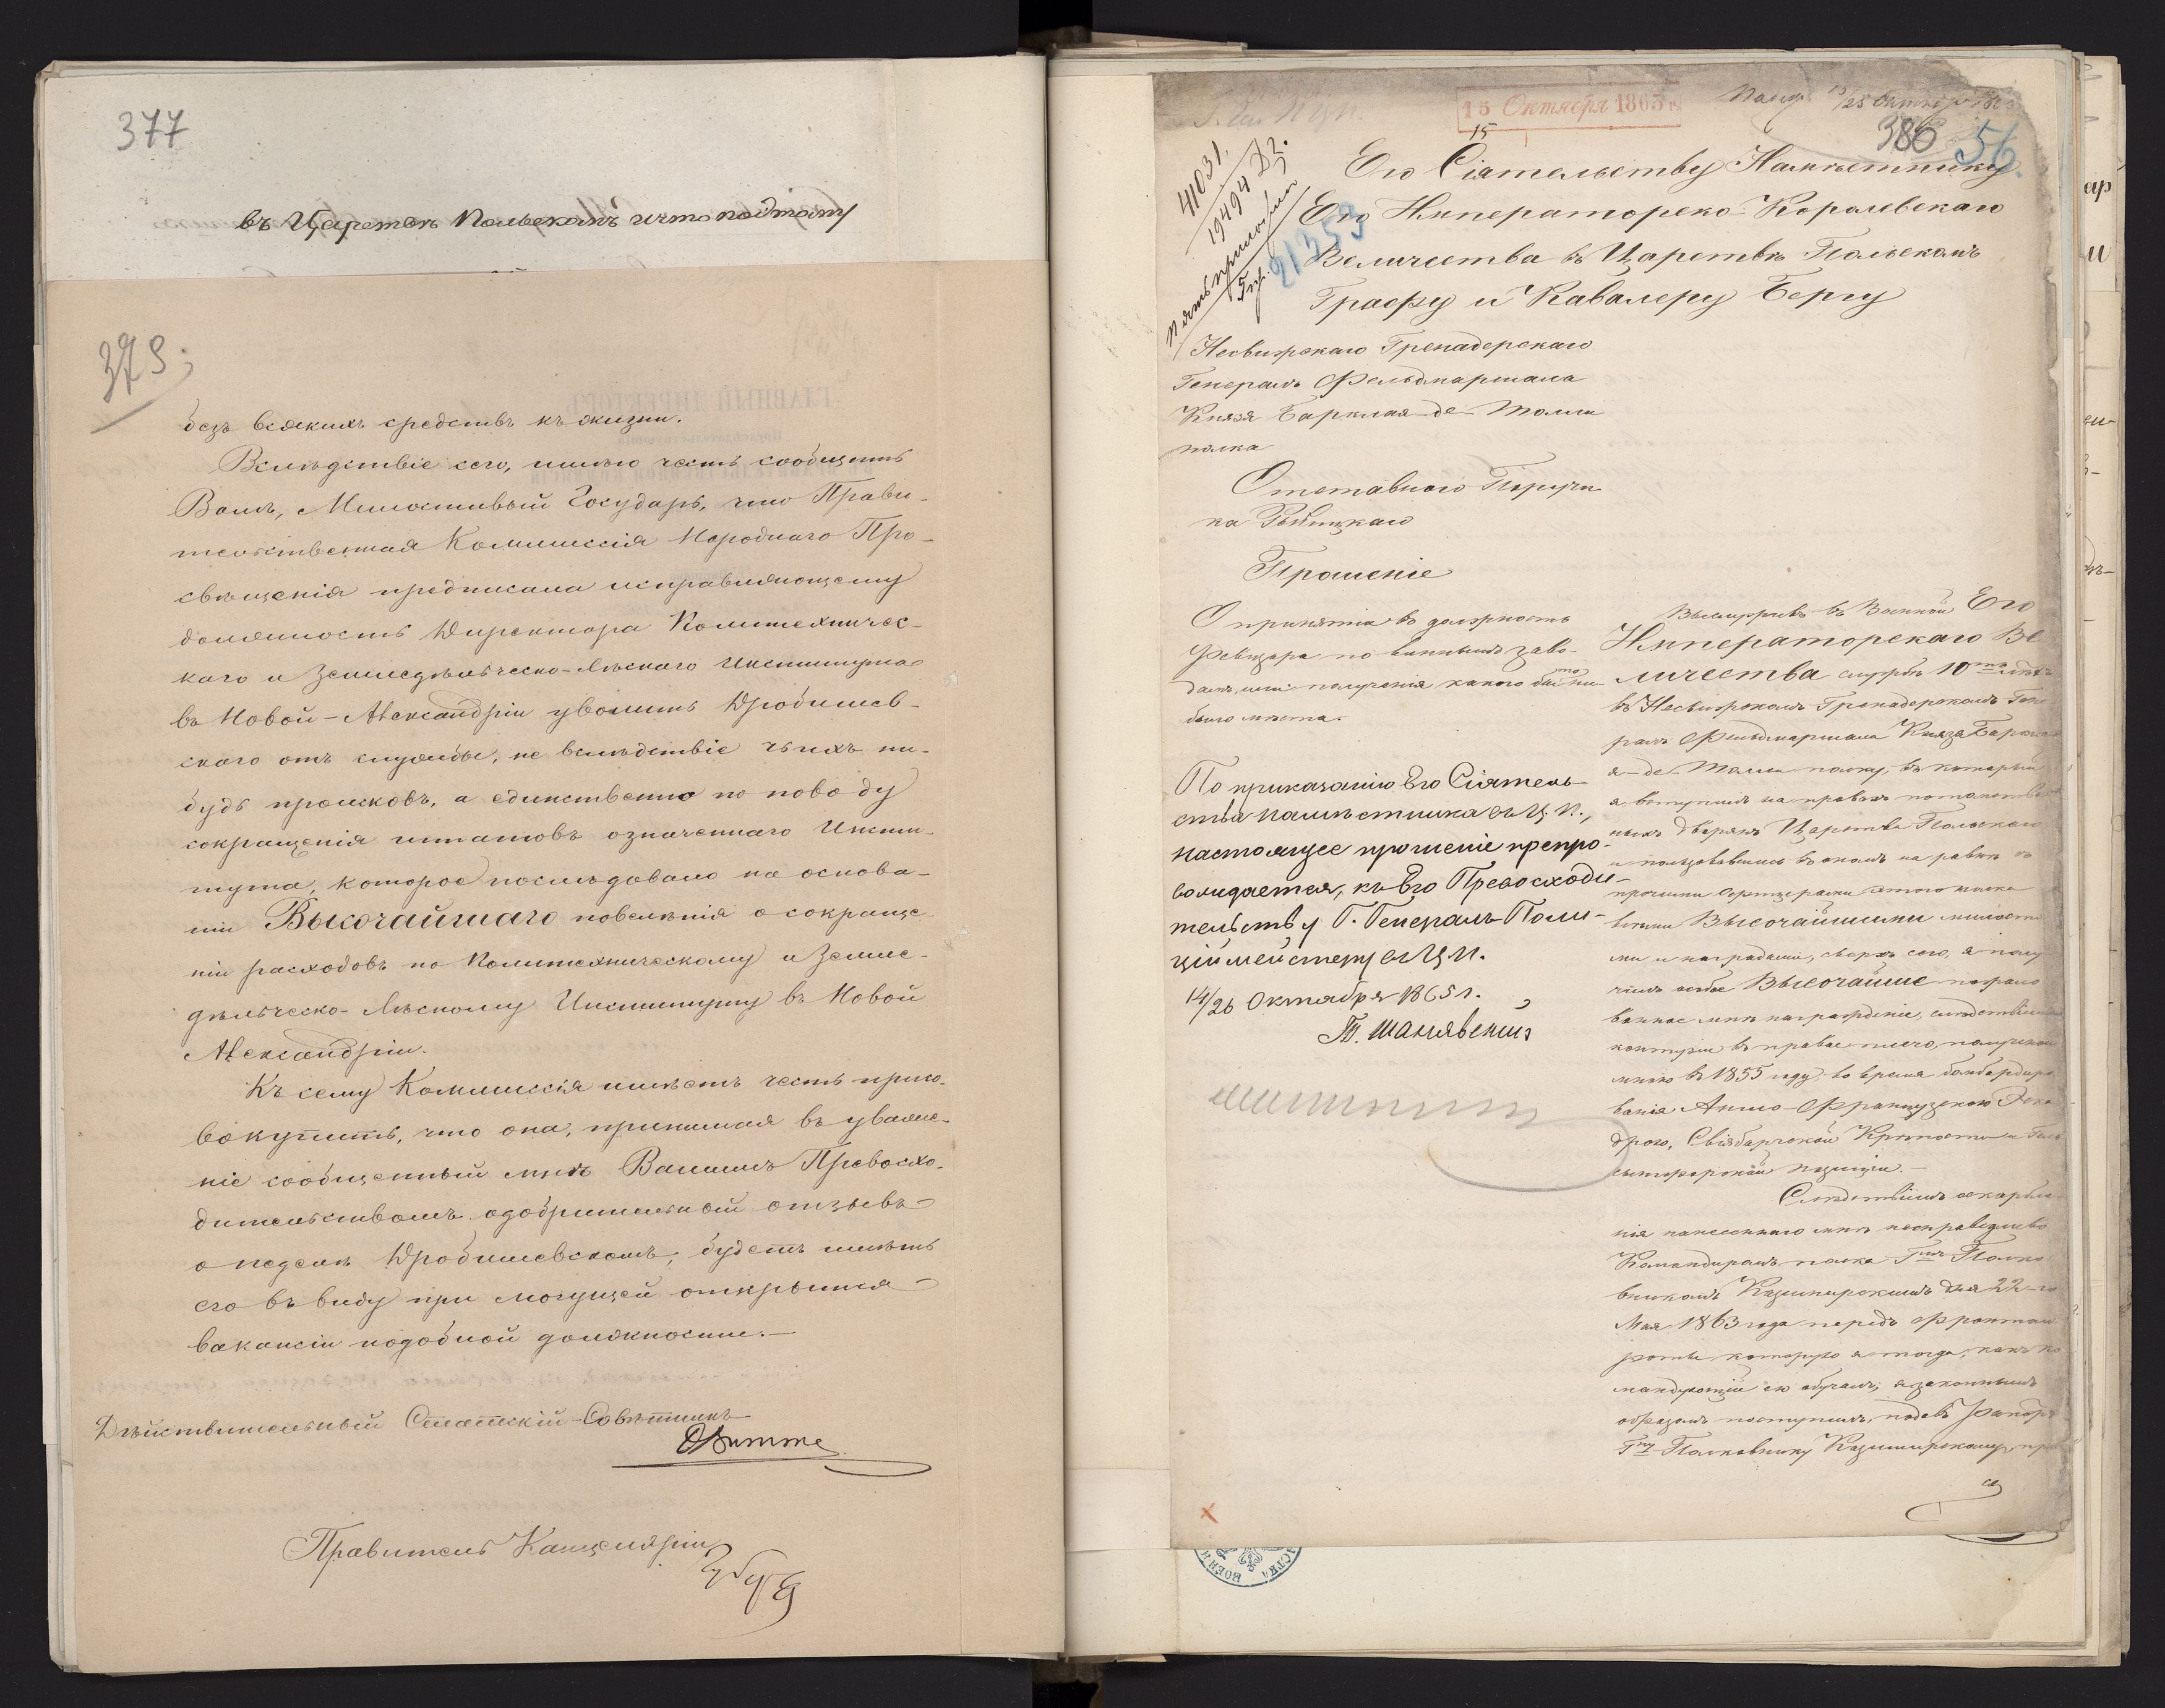 377
въ Царствѣ Польскомъ и что подтому
379
безъ всякихъ средствъ къ жизни.
Вслѣдствіе сего, имѣю честь сообщить
Вамъ, Милостивый Государь, что Прави-
тельственная Коммиссія Народнаго Про-
свѣщенія предписала исправляющему
должность Директора Политехничес-
каго и Земледѣльческо-Лѣснаго Института
въ Новой-Александріи уволить Дробишев-
скаго отъ службы, не вслѣдствіе чьихъ ни-
будь происковъ, а единственно по поводу
сокращенія штатовъ означеннаго Инсти-
тута, которое послѣдовало на основа-
ніи Высочайшаго повелѣнія о сокраще-
ніи расходовъ по Политехническому и Земле-
дѣльческо-Лѣсному Институту въ Новой
Александріи.
Къ сему Коммиссія имѣетъ честь присо-
вокупить, что она, принимая въ уваже-
ніе сообщенный мнѣ Вашимъ Превосхо-
дительствомъ одобрительный отзывъ
о педелѣ Дробишевскомъ, будетъ имѣть
его въ виду при могущей открыться
вакансіи подобной должности.—
Дѣйствительный Статскій Совѣтникъ
Витте
Правитель Канцеляріи
15 Октября 1865 г.
15
13/25 Октября 1865
386 56
41031.
19494 Д2.
21353
Его Сіятельству Намѣстнику
Его Императорско-Королевскаго
Величества въ Царствѣ Польскомъ
Графу и Кавалеру Бергу
Несвижскаго Гренадерскаго
Генералъ Фельдмаршала
Князя Барклая-де-Толли
полка
Отставного Поручи
ка
Прошеніе
О принятіи въ должность
Ревизора по виннымъ заво-
дамъ, или полученія какого бы то ни
было мѣста.
По приказанію Его Сіятель-
ства Намѣстника въ Ц. П.,
настоящее прошеніе препро-
вождается, къ Его Превосходи-
тельству Г. Генералъ-Поли-
ціймейстеру въ Ц. П.
14/26 Октября 1865 г.
Т. Шанявскій
Выслуживъ въ Военной Его
Императорскаго Ве
личества службѣ 10ть лѣтъ
въ Несвижскомъ Гренадерскомъ Гене
ралъ Фельдмаршала Князя Баркла
я-де-Толли полку, въ который
я вступилъ на правахъ потомствен
ныхъ дворянъ Царства Польскаго
и пользовавшись въ ономъ на равнѣ съ
прочими офицерами этого полка
всѣми Высочайшими милостя
ми и наградами, сверхъ сего, я полу
чилъ особое Высочайше пожало
ванное мнѣ награжденіе, слѣдствіемъ
контузіи въ правое плечо, полученной
мною въ 1855 году, во время бомбардиро
ванія Англо-Французскою Эска
дрою, Свіяборгской Крѣпости и Гель
сингфорской позиціи.—
Слѣдствіемъ оскорбле
нія нанесеннаго мнѣ несправедливо
Командиромъ полка Гмъ Полко
вникомъ Казимирскимъ дня 22-го
Мая 1863 года передъ фронтомъ
роты которую я тогда, какъ ко
мандующій ею обучалъ, я законнымъ
образомъ поступилъ, подавъ рапортъ
Гну Полковнику Казимирскому